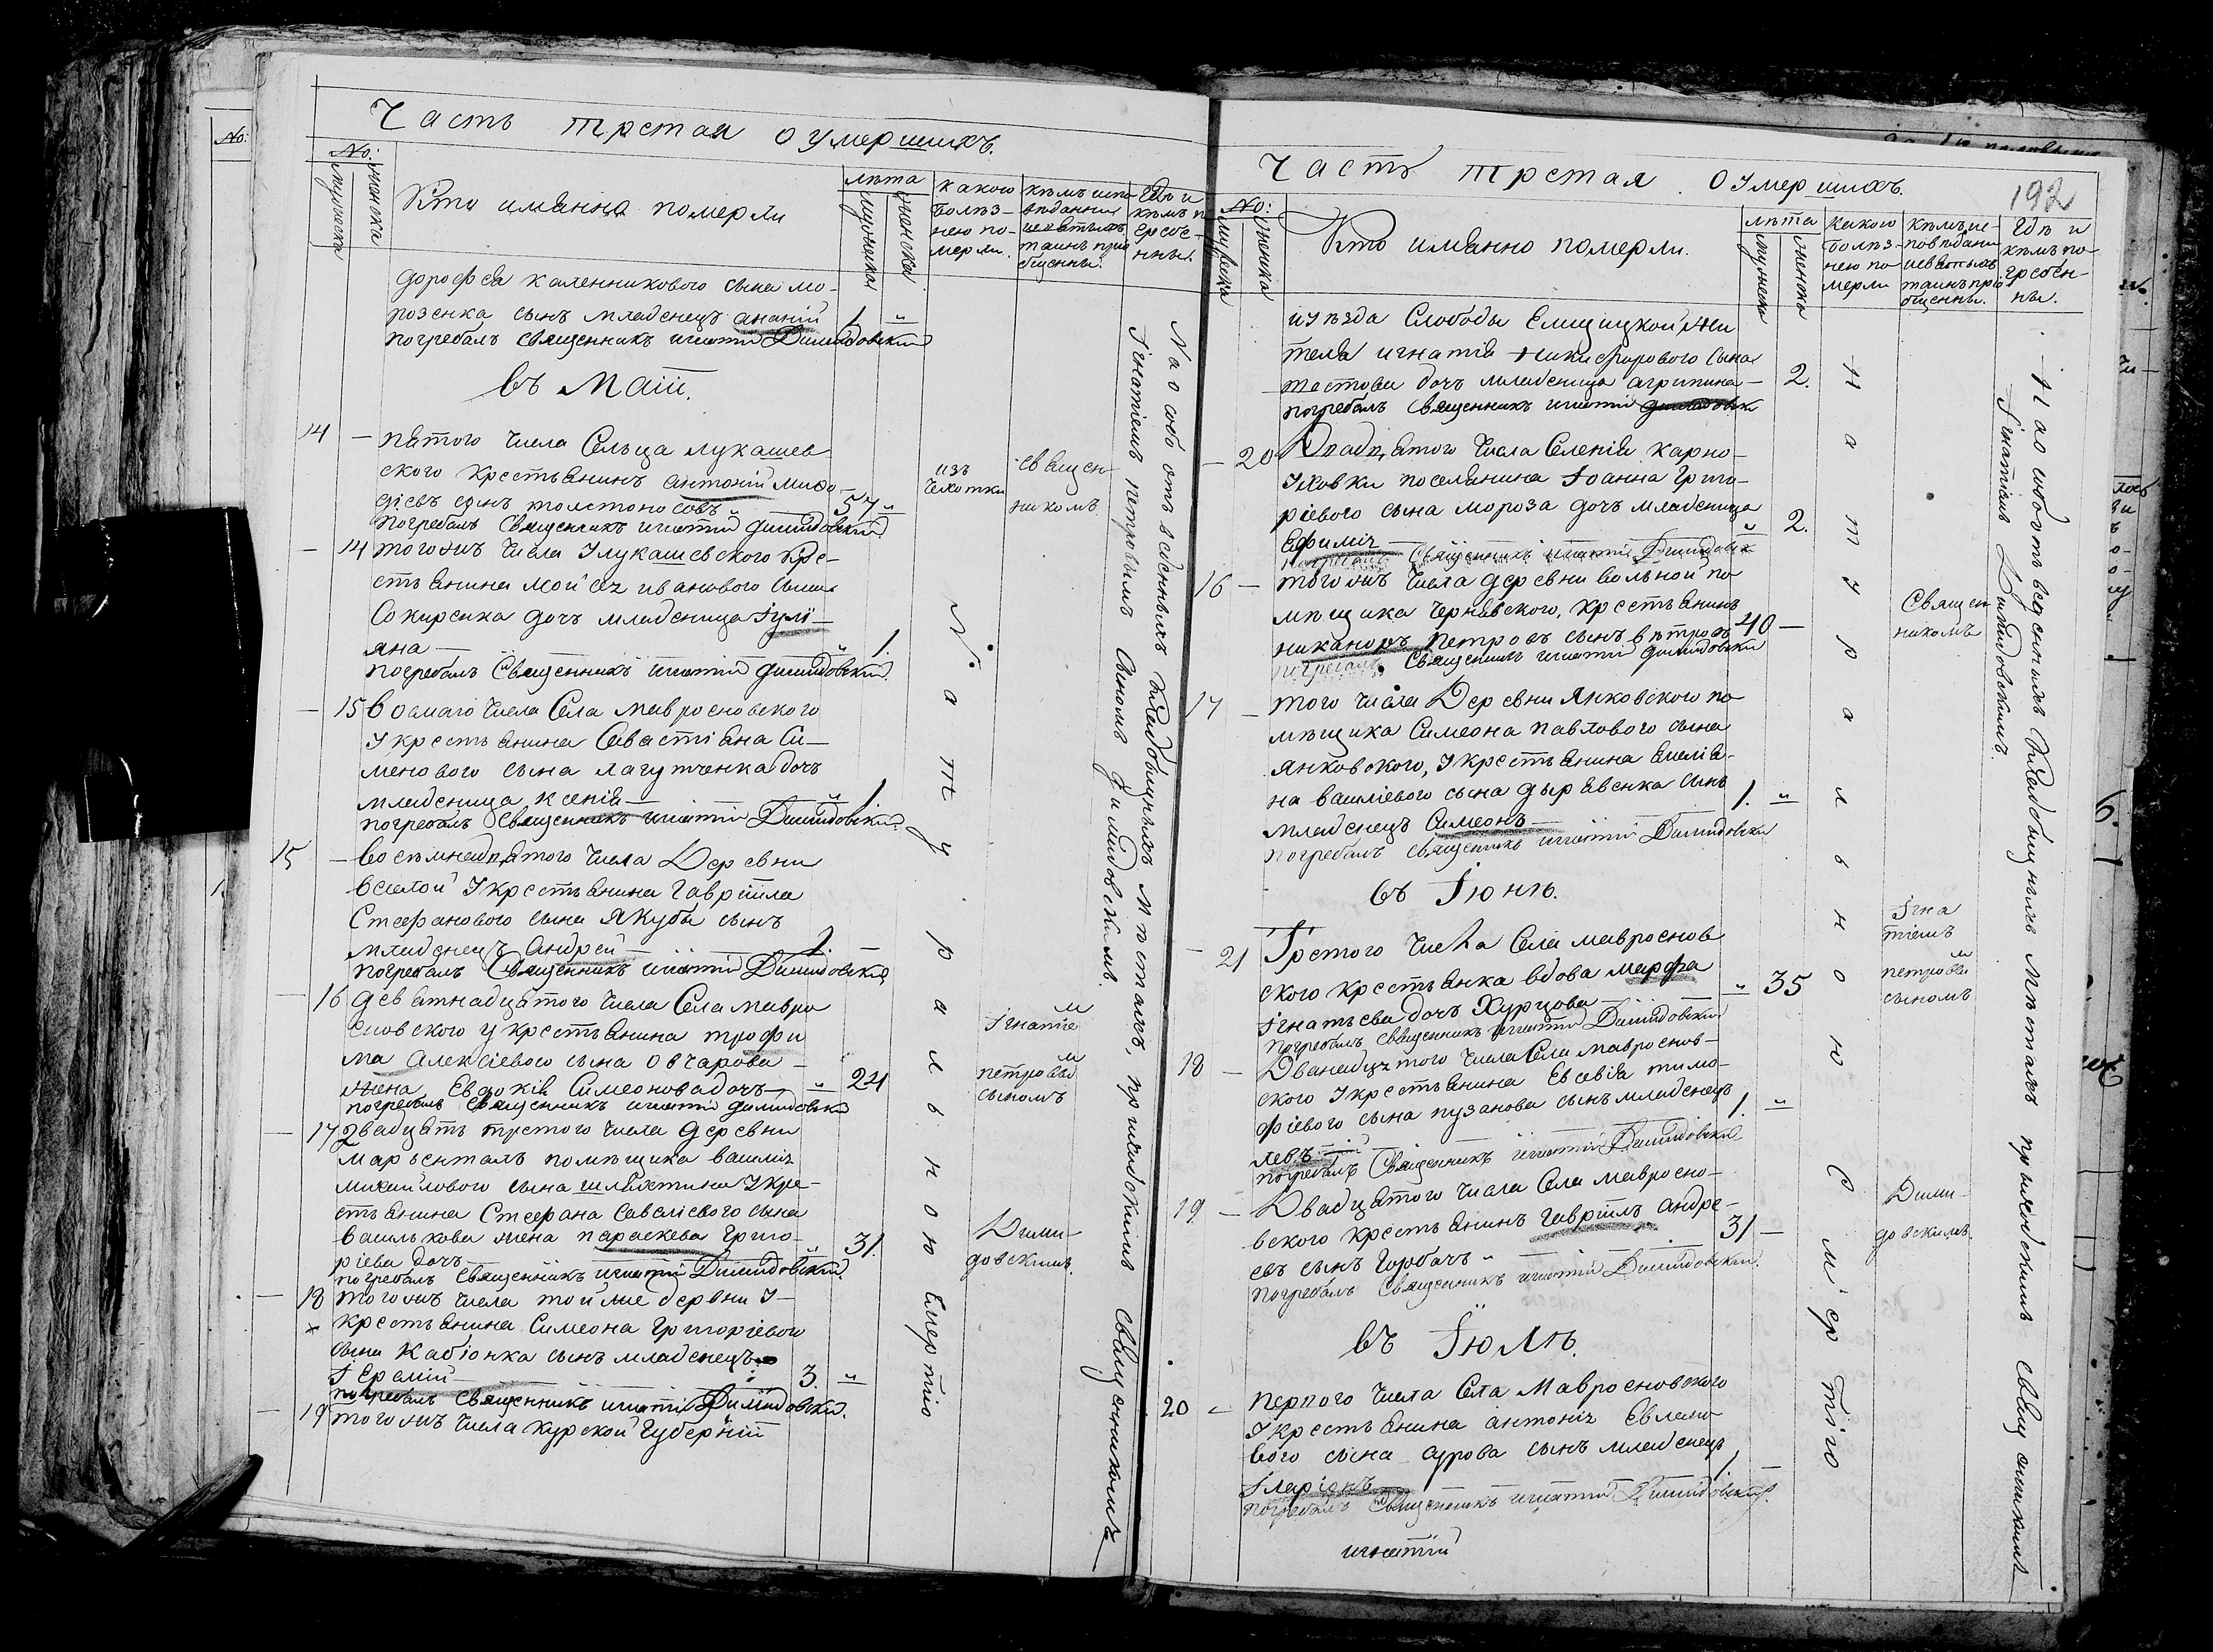 Часть третая о умершихъ.
No:
мужеска
женска
Кто имянно померли
лѣта
мужеска
женска
какого болѣз-
нею по-
мерли.
кѣмъ испо-
вѣданы
и святыхъ
таинъ прио
бщенны.
Гдѣ и
кѣмъ п
гребе-
нны.
дорофея каленникового сына мо-
розенка сынъ младенецъ ананій 1 "
погребалъ священникъ игнатій Димидовскій
въ Маіи.
14 — пятого числа Сельца лукашев
ского крестьянинъ антоній мифо-
діевъ сынъ толстоносовъ 57 "
изъ чахотки
священ
никомъ
погребалъ священникъ игнатій димидовскій
— 14 тогожъ числа у лукашевского кре-
стьянина Мойсея иванового сына
Сокирсика дочъ младеница Іулі-
яна — " 1.
погребалъ Священникъ игнатій димидовскій.
— 15 восмаго числа Села мавросновского
у крестьянина Савастіяна Си-
менового сына лагутченка дочъ
младеница ксенія — " 1.
погребалъ священникъ игнатій Димидовскій.
15 — восѣмнадцятого числа Деревни
весіолой у крестьянина гавріила
Стефанового сына якубы сынъ
младенецъ андрей — 1. —
погребалъ Священникъ игнатій Димидовскій
— 16 девятнадцатого числа Села мавро
сновского у крестьянина трофи
ма алексіевого сына овчарова —
жена Евдокія Симеонова дочь " 24
погребалъ священникъ игнатій димидовскій
— 17 двадцать третого числа деревни
марьенталъ помѣщика василія
михайлового сына шляхтина у кре-
стьянина Стефана савелієвого сына
василькова жена параскева григо-
ріева дочь " 31.
погребалъ священникъ игнатій Димидовскій.
— 18 тогожъ числа той же дервни у
крестьянина Симеона григоріевого
сына Кабіонка сынъ младенецъ
Іеремій — 3. "
погребалъ священникъ игнатій Димидовскій.
— 19 того жъ числа курской губерніи
Натуральною смертію
Ігнатіе
м
петровы
м
сыномъ
Дими-
довскимъ.
На особо отведенныхъ кладбищныхъ мѣстахъ, приходскимъ священникомъ
Ігнатіемъ петровымъ сыномъ димидовскимъ.
Часть третая о умершихъ.
192
No:
мужеска
женска
Кто имянно померли.
лѣта
мужеска
женска
какого
болѣз-
нею по
мерли
кѣмъ ис-
повѣданы
и святыхъ
таинъ прио
бщенны.
Гдѣ и
кѣмъ по-
гребен-
ны.
изъ уѣзда Слободы жи
теля игнатія никифорового сына
тестова дочъ младеница агрипина — 2.
погребалъ Священникъ игнатій димидовск
— 20 Двадцятого числа Селенія карно-
уховки поселянина Іоанна григо-
ріевого сына мороза дочъ младеница
Ефимія — " 2.
погребалъ Священникъ игнатій Димидовск
16 — тогожъ числа деревни вольной по
мѣщика чернявского, крестьянинъ
никаноръ петровъ сынъ вѣтровъ 40 —
погребалъ Священникъ игнатій димидовскій
17 — того числа Деревни Янковского по
мѣщика Симеона павлового сына
янковского, у крестьянина Емелія-
на василіевого сына дыравенка сынъ
младенецъ Симеонъ — 1. "
погребалъ священникъ игнатій Димидовскій
въ Іюнѣ.
— 21 Третого числа Села мавроснов
ского крестьянка вдова марфа
Ігнатьева дочъ Хурцова — " 35
погребалъ священникъ игнатій Димидовскій
18 — Дванадцятого числа Села мавроснов-
ского у крестьянина Евсевія тимо-
фіевого сына пузанова сынъ младенецъ
левъ — 1. "
погребалъ Священникъ игнатій Димидовскій
19 — Двадцятого числа Села мавросно-
вского крестьянинъ гавріилъ андре-
евъ сынъ горбачъ 31 —
погребалъ Священникъ игнатій Димидовскій.
въ Іюлѣ.
20 — перпого числа Села Мавросновского
у крестьянина антонія Евлами
вого сына сурова сынъ младенецъ
Іларіонъ 1 —
погребалъ священникъ игнатій Димидовскій.
игнатій
Натуральною смертію
Священ
никомъ
Ігна
тіемъ
петровы
м
сыномъ
Дими-
довскимъ
На особо отведенныхъ кладбищныхъ мѣстахъ приходскимъ священникомъ
Ігнатіемъ Димидовскимъ.